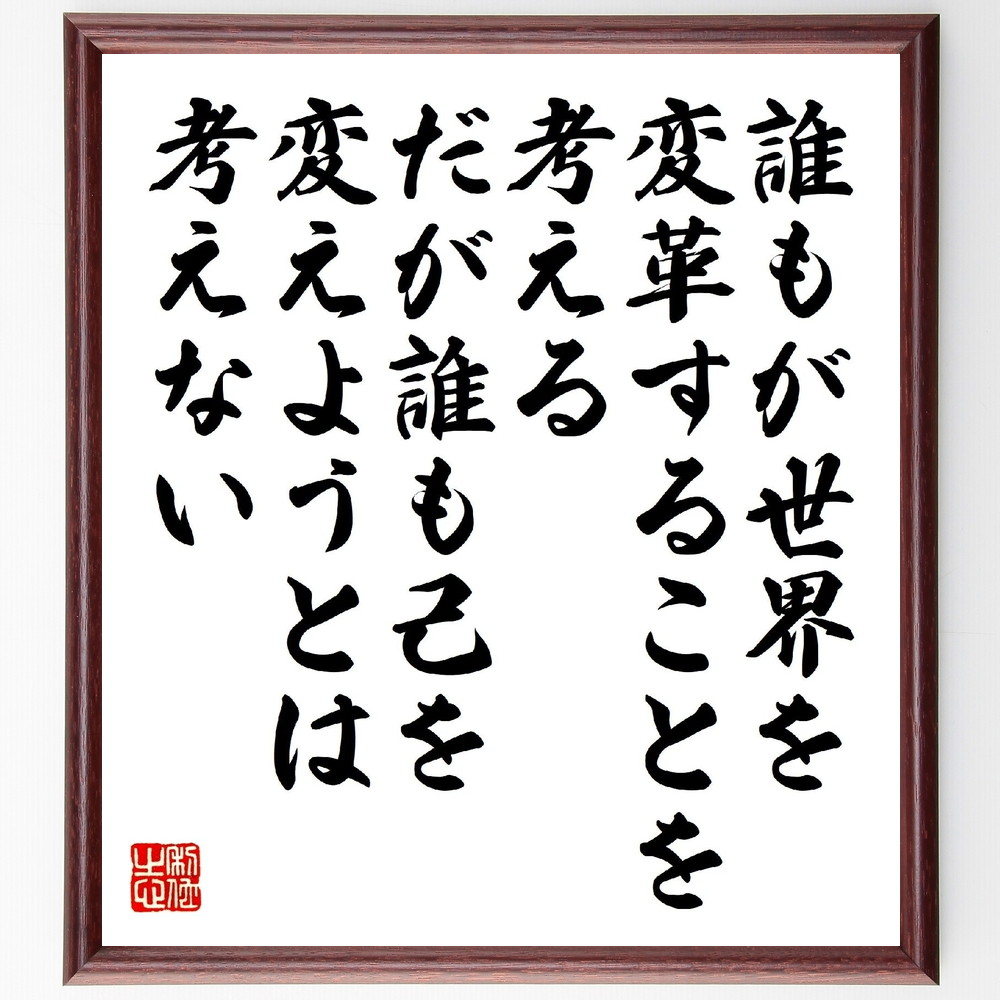 誰もが世界を
変革することを
考える
だが誰も己を
変えようとは
考えない